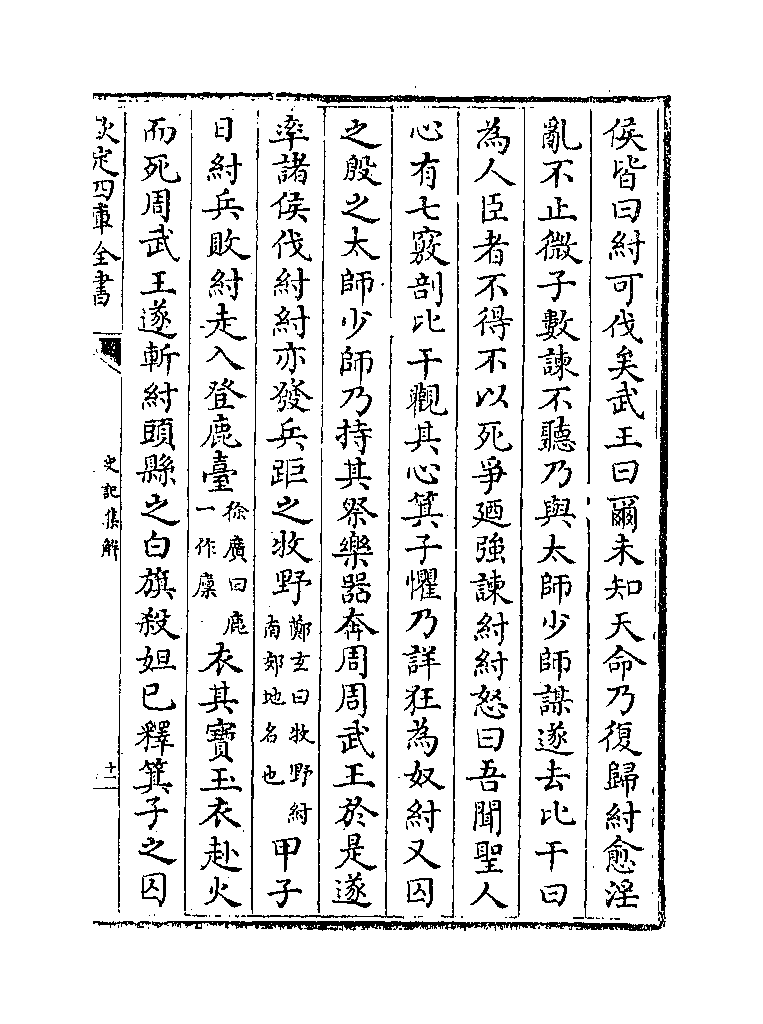 侯皆曰紂可伐矣武王曰爾未知天命乃復歸紂愈淫
亂不止微子數諫不聽乃與太師少師謀遂去比干曰
為人臣者不得不以死爭廼強諫紂紂怒曰吾聞聖人
心有七竅剖比干觀其心箕子懼乃詳狂為奴紂又囚
之殷之太師少師乃持其祭樂器奔周周武王於是遂
率諸侯伐紂紂亦發兵距之牧野鄭玄曰牧野紂南郊地名也甲子
日紂兵敗紂走入登鹿臺徐廣曰鹿一作廩衣其寶玉衣赴火
而死周武王遂斬紂頭縣之白旗殺妲已釋箕子之囚
欽定四庫全書
史記集解
十二